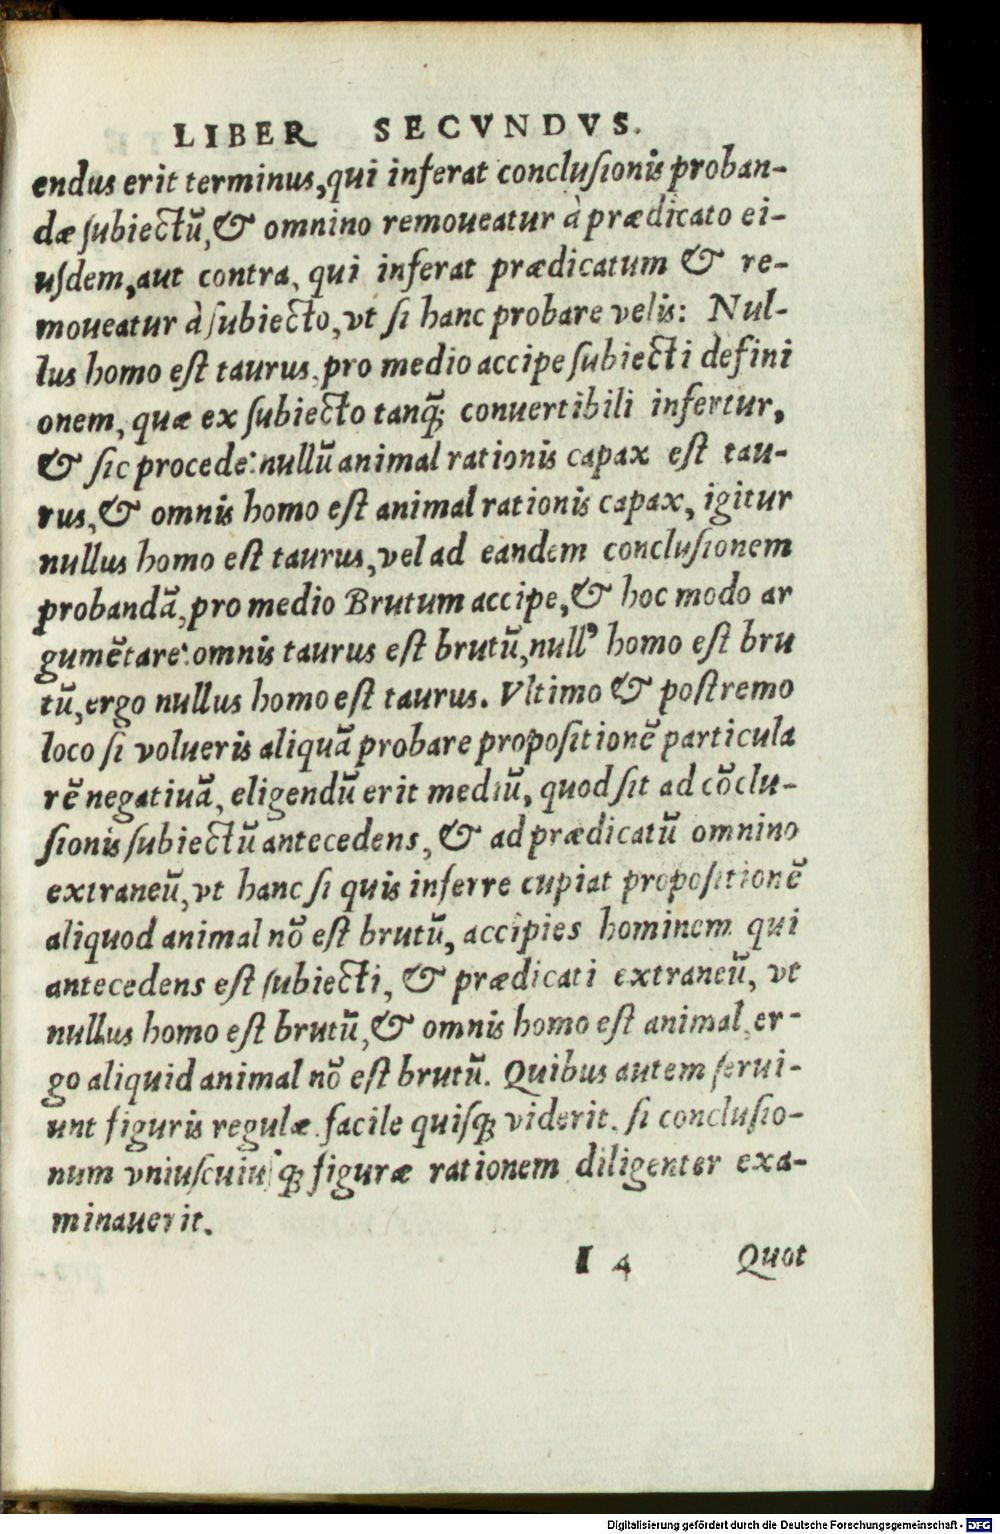 LIBER SECVNDVS.
endus erit terminus, qui inferat conclusionis proban-
dæ subiectū, & omnino remoueatur à prædicato ei-
usdem, aut contra, qui inferat prædicatum & re-
moueatur à subiecto, vt si hanc probare velis: Nul-
lus homo est taurus, pro medio accipe subiecti defini
onem, quæ ex subiecto tanq̃; conuertibili infertur,
& sic procede: nullū animal rationis capax est tau-
rus, & omnis homo est animal rationis capax, igitur
nullus homo est taurus, vel ad eandem conclusionem
probandā, pro medio Brutum accipe, & hoc modo ar
gumētare: omnis taurus est brutū, nullꝰ homo est bru
tū, ergo nullus homo est taurus. Vltimo & postremo
loco si volueris aliquā probare propositionē particula
rē negatiuā, eligendū erit mediū, quod sit ad cōclu-
sionis subiectū antecedens, & ad prædicatū omnino
extraneū, vt hanc si quis inferre cupiat propositionē
aliquod animal nō est brutū, accipies hominem qui
antecedens est subiecti, & prædicati extraneū, vt
nullus homo est brutū, & omnis homo est animal, er-
go aliquid animal nō est brutū. Quibus autem serui-
unt figuris regulæ facile quisq; viderit, si conclusio-
num vniuscuiusq; figuræ rationem diligenter exa-
minauerit.
I 4 Quot
Digitalisierung gefördert durch die Deutsche Forschungsgemeinschaft - DFG